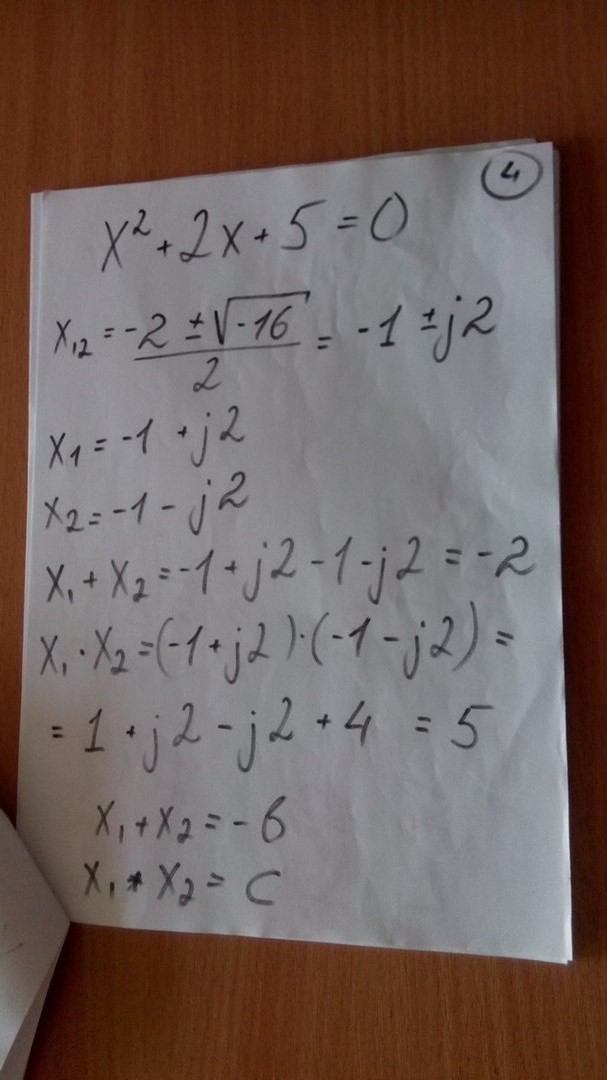 4
x² + 2x + 5 = 0
x₁₂ = (-2 ± √-16) / 2 = -1 ± j2
x₁ = -1 + j2
x₂ = -1 - j2
x₁ + x₂ = -1 + j2 - 1 - j2 = -2
x₁ · x₂ = (-1 + j2) · (-1 - j2) =
= 1 + j2 - j2 + 4 = 5
x₁ + x₂ = -b
x₁ * x₂ = c